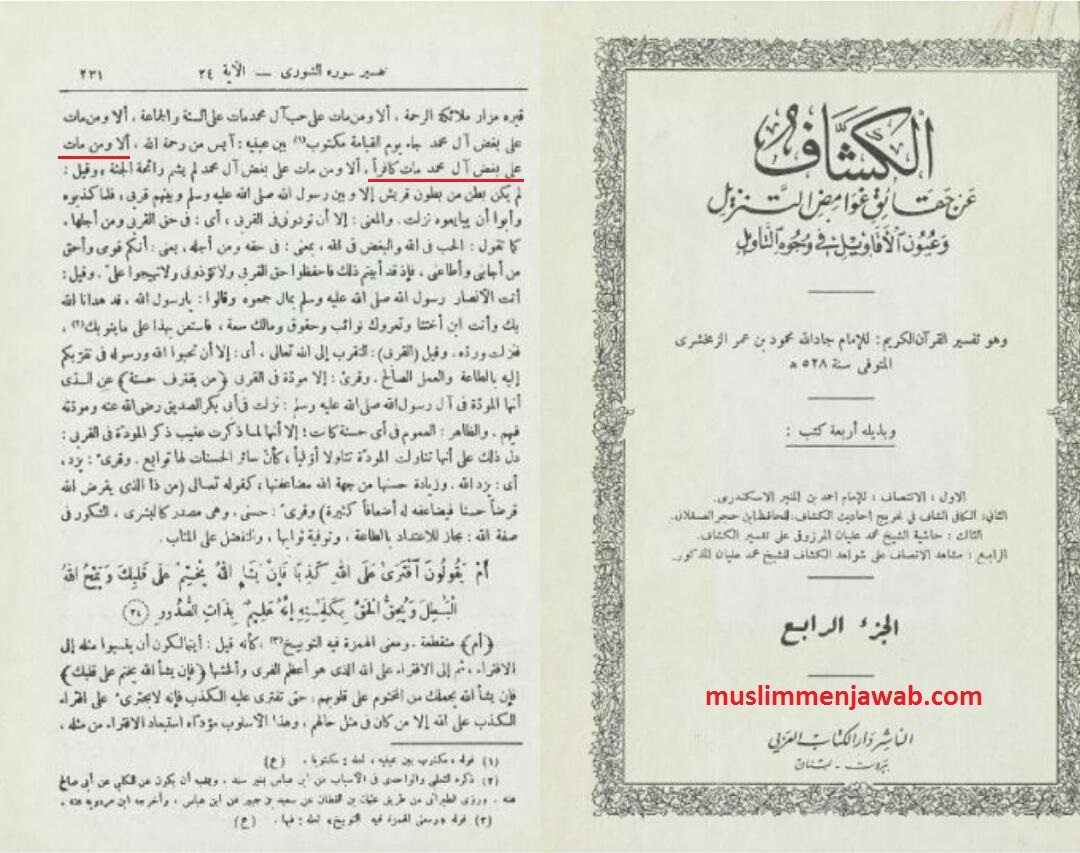 تفسير سورة الشورى — الآية ٢٤ ٢٣١
قبره مزار ملائكة الرحمة ، ألا ومن مات على حب آل محمد مات على السنة والجماعة ، ألا ومن مات
على بغض آل محمد جاء يوم القيامة مكتوب(١) بين عينيه : آيس من رحمة الله ، ألا ومن مات
على بغض آل محمد مات كافراً ، ألا ومن مات على بغض آل محمد لم يشم رائحة الجنة ، وقيل :
لم يكن بطن من بطون قريش إلا وبين رسول الله صلى الله عليه وسلم وبينهم قربى ، فلما كذبوه
وأبوا أن يبايعوه نزلت . والمعنى : إلا أن تودونى فى القربى ، أى : فى حق القربى ومن أجلها .
كما تقول : الحب فى الله والبغض فى الله ، بمعنى : فى حقه ومن أجله ، يعنى : أنكم قومى وأحق
من أجابنى وأطاعنى ، فإذ قد أبيتم ذلك فاحفظوا حق القربى ولا تؤذونى ولا تهيجوا علىّ . وقيل :
أتت الأنصار رسول الله صلى الله عليه وسلم بمال جمعوه وقالوا : يا رسول الله ، قد هدانا الله
بك وأنت ابن أختنا وتعروك نوائب وحقوق ومالك سعة ، فاستعن بهذا على ما ينوبك(٢) ،
فنزلت ورده . وقيل (القربى) : التقرب إلى الله تعالى ، أى : إلا أن تحبوا الله ورسوله فى تقربكم
إليه بالطاعة والعمل الصالح . وقرئ : إلا مودّة فى القربى (من يقترف حسنة) عن السدى
أنها المودّة فى آل رسول الله صلى الله عليه وسلم : نزلت فى أبى بكر الصديق رضى الله عنه ومودّته
فيهم . والظاهر : العموم فى أى حسنة كانت ؛ إلا أنها لما ذكرت عقيب ذكر المودّة فى القربى :
دل ذلك على أنها تناولت المودّة تناولا أوّلياً ، كأنّ سائر الحسنات لها توابع . وقرئ : يزد ،
أى : يزد الله . وزيادة حسنها من جهة الله مضاعفتها ، كقوله تعالى (من ذا الذى يقرض الله
قرضاً حسناً فيضاعفه له أضعافاً كثيرة) وقرئ : حسنى ، وهى مصدر كالبشرى ، الشكور فى
صفة الله : مجاز للاعتداد بالطاعة ، وتوفية ثوابها ، والتفضل على المثاب .
أَمْ يَقُولُونَ ٱفْتَرَىٰ عَلَى ٱللَّهِ كَذِبًا فَإِنْ يَشَإِ ٱللَّهُ يَخْتِمْ عَلَىٰ قَلْبِكَ وَيَمْحُ ٱللَّهُ
ٱلْبَٰطِلَ وَيُحِقُّ ٱلْحَقَّ بِكَلِمَٰتِهِ إِنَّهُ عَلِيمٌ بِذَاتِ ٱلصُّدُورِ (٢٤)
(أم) منقطعة . ومعنى الهمزة فيه التوبيخ(٣) ، كأنه قيل : أيتمالكون أن ينسبوا مثله إلى
الافتراء ، ثم إلى الافتراء على الله الذى هو أعظم الفرى وأفحشها (فإن يشأ الله يختم على قلبك)
فإن يشأ الله يجعلك من المختوم على قلوبهم . حتى تفترى عليه الكذب فإنه لا يجترئ على افتراء
الكذب على الله إلا من كان فى مثل حالهم ، وهذا الأسلوب مؤدّاه استبعاد الافتراء من مثله ،
(١) قوله ، مكتوب بين عينيه ، لعله : مكتوبا . (ع)
(٢) ذكره الثعلبى والواحدى فى الأسباب من ابن عباس بغير سند . ويشبه أن يكون عن الكلبى عن أبى صالح
عنه . وروى الطبرانى من طريق عثمان بن القطان عن سعيد بن جبير عن ابن عباس . وأخرجه ابن مردويه عنه .
(٣) قوله ، ومعنى الهمزة فيه التوبيخ ، لعله : فيها . (ع)
الكشاف
عن حقائق غوامض التنزيل
وعيون الأقاويل في وجوه التأويل
وهو تفسير القرآن الكريم : للإمام جار الله محمود بن عمر الزمخشرى
المتوفى سنة ٥٢٨ ه
وبذيله أربعة كتب :
الاول : الانتصاف : للإمام احمد بن المنير الاسكندرى.
الثاني: الكافى الشاف فى تخريج احاديث الكشاف. للحافظ ابن حجر العسقلانى.
الثالث : حاشية الشيخ محمد عليان المرزوقى على تفسير الكشاف.
الرابع : مشاهد الانصاف على شواهد الكشاف للشيخ محمد عليان المذكور.
الجزء الرابع
muslimmenjawab.com
الناشر دار الكتاب العربي
بيروت - لبنان